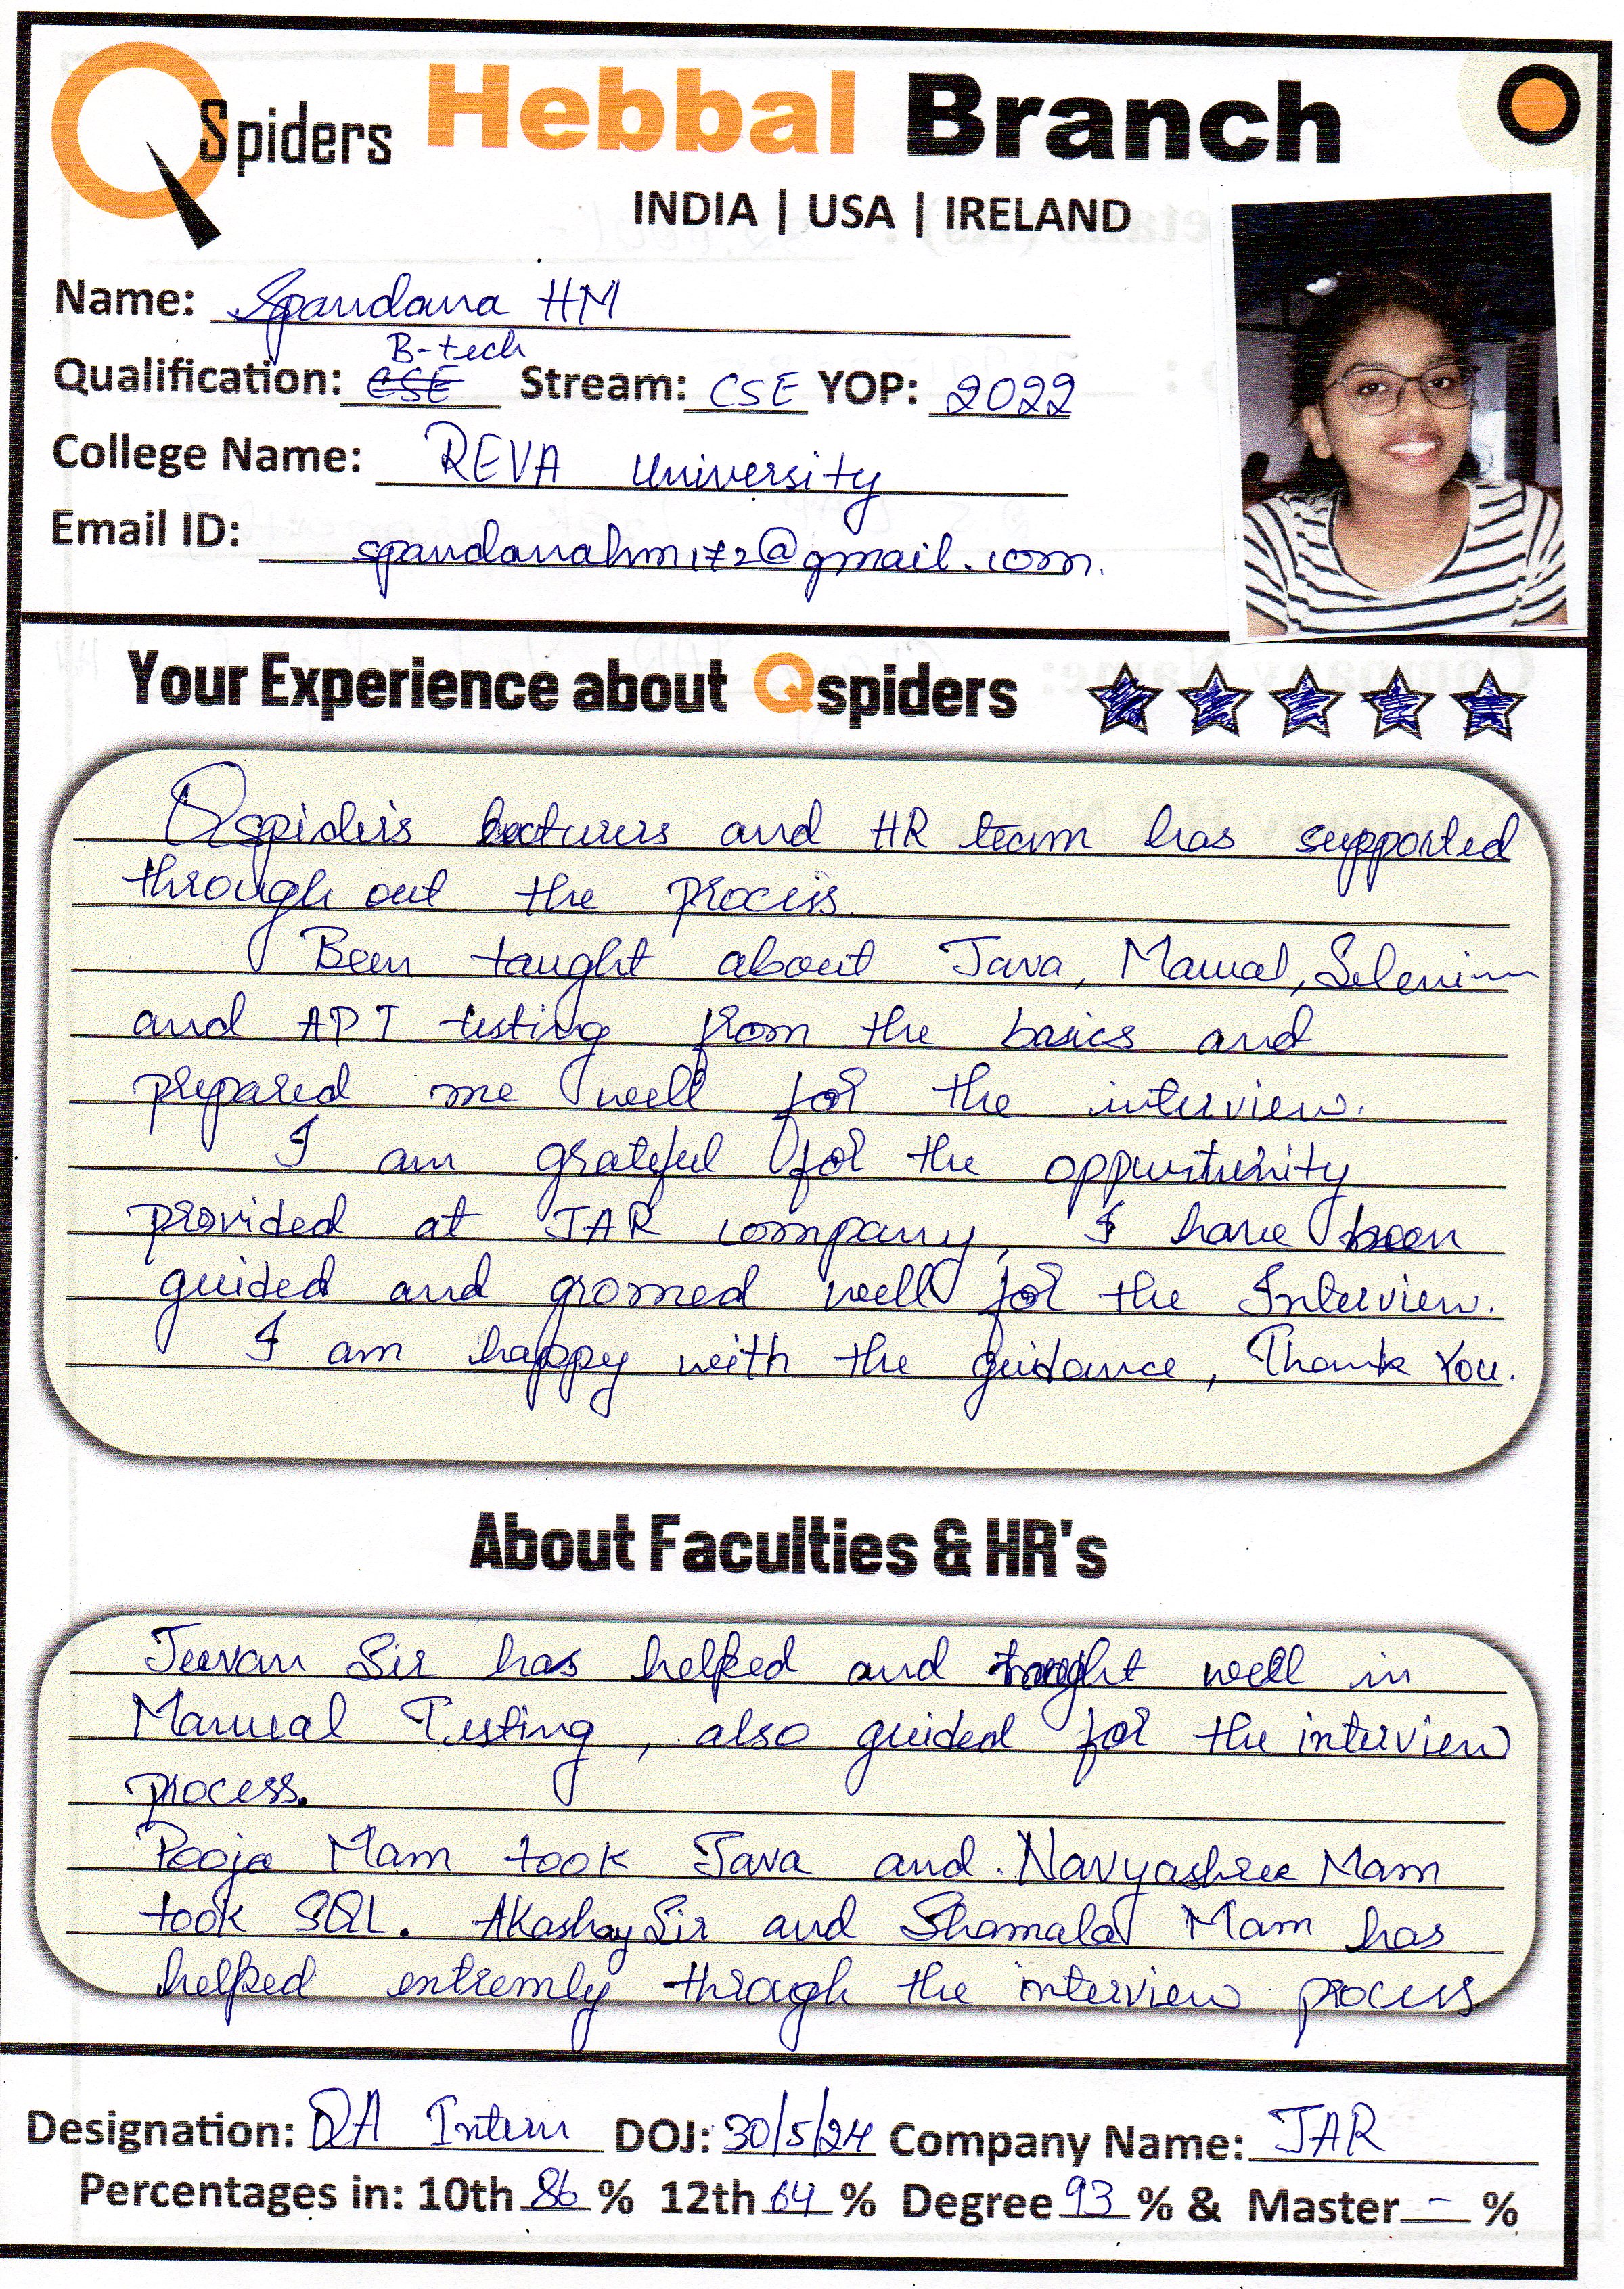 QSpiders Hebbal Branch
INDIA | USA | IRELAND
Name: Spandana HM
Qualification: CSE B-tech Stream: CSE YOP: 2022
College Name: REVA University
Email ID: spandanahm172@gmail.com.
Your Experience about Qspiders
Qspiders lecturers and HR team has supported
through out the process.
Been taught about Java, Manual, Selenium
and API testing from the basics and
prepared me well for the interview.
I am grateful for the oppurtunity
provided at JAR company, I have been
guided and gromed well for the Interview.
I am happy with the guidance, Thank You.
About Faculties & HR's
Jeevan Sir has helped and taught well in
Manual Testing, also guided for the interview
process.
Pooja Mam took Java and Navyashree Mam
took SQL. Akashay Sir and Shamala Mam has
helped extremly through the interview process
Designation: QA Intern DOJ: 30/5/24 Company Name: JAR
Percentages in: 10th 86 % 12th 64 % Degree 93 % & Master - %